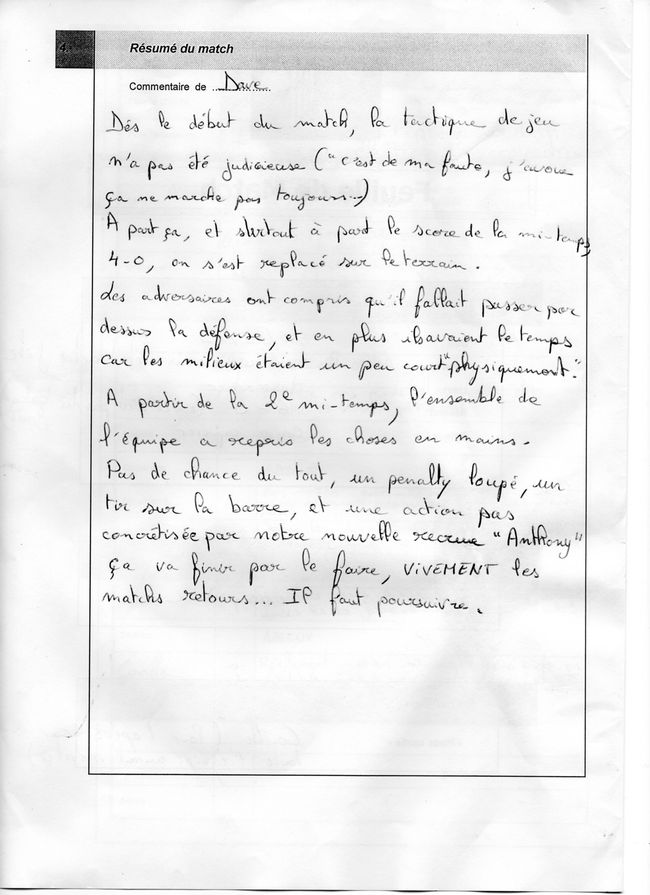 4. Résumé du match
Commentaire de Dave
Dés le début du match, la tactique de jeu
n'a pas été judicieuse ("c'est de ma faute, j'avoue
ça ne marche pas toujours...)
A part ça, et surtout à part le score de la mi-temps,
4-0, on s'est replacé sur le terrain.
Les adversaires ont compris qu'il fallait passer par
dessus la défense, et en plus ils avaient le temps
car les milieux étaient un peu court "physiquement".
A partir de la 2e mi-temps, l'ensemble de
l'équipe a repris les choses en mains.
Pas de chance du tout, un penalty loupé, un
tir sur la barre, et une action pas
concrétisée par notre nouvelle recrue "Anthony"
ça va finir par le faire, VIVEMENT les
matchs retours... Il faut poursuivre.